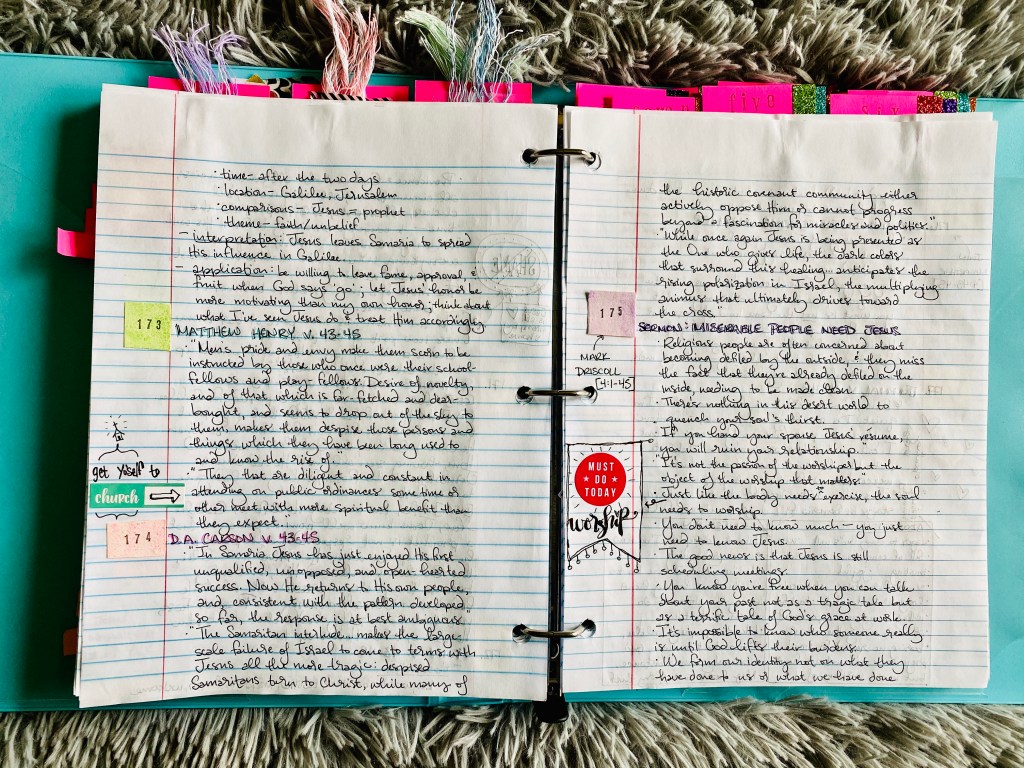 · time- after the two days
· location- Galilee, Jerusalem
· comparisons- Jesus = prophet
· theme- faith/unbelief
- interpretation: Jesus leaves Samaria to spread
His influence in Galilee
- application: be willing to leave fame, approval, &
fruit when God says 'go'; let Jesus' honor be
more motivating than my own honor; think about
what I've seen Jesus do & treat Him accordingly
173
MATTHEW HENRY V. 43-45
· "Men's pride and envy make them scorn to be
instructed by those who once were their school-
fellows and play-fellows. Desire of novelty,
and of that which is far-fetched and dear-
bought, and seems to drop out of the sky to
them, makes them despise those persons and
things which they have been long used to
and know the rise of."
· "They that are diligent and constant in
attending on public ordinances some time or
other meet with more spiritual benefit than
they expect."
get yoself to
church
174
D.A. CARSON V. 43-45
· "In Samaria Jesus has just enjoyed His first
unqualified, unopposed, and open-hearted
success. Now He returns to His own people,
and, consistent with the pattern developed
so far, the response is at best ambiguous."
· "The Samaritan interlude... makes the large-
scale failure of Israel to come to terms with
Jesus all the more tragic: despised
Samaritans turn to Christ, while many of
five
the historic covenant community either
actively oppose Him or cannot progress
beyond a fascination for miracles and politics."
· "While once again Jesus is being presented as
the One who gives life, the dark colors
that surround this healing... anticipates the
rising polarization in Israel, the multiplying
animus that ultimately drives toward
the cross."
175
SERMON: MISERABLE PEOPLE NEED JESUS
MARK
DRISCOLL
[4:1-45
· Religious people are often concerned about
becoming defiled by the outside, & they miss
the fact that they're already defiled on the
inside, needing to be made clean.
· There's nothing in this desert world to
quench your soul's thirst.
· If you hand your spouse Jesus' résumé,
you will ruin your relationship.
· "It's not the passion of the worshiper but the
object of the worship that matters."
· Just like the body needs exercise, the soul
needs to worship.
· You don't need to know much – you just
need to know Jesus.
· The good news is that Jesus is still
scheduling meetings.
· You know you're free when you can talk
about your past not as a tragic tale but
as a terrific tale of God's grace at work.
· It's impossible to know who someone really
is until God lifts their burdens.
· We form our identity not on what they
have done to us or what we have done
MUST
DO
TODAY
worship